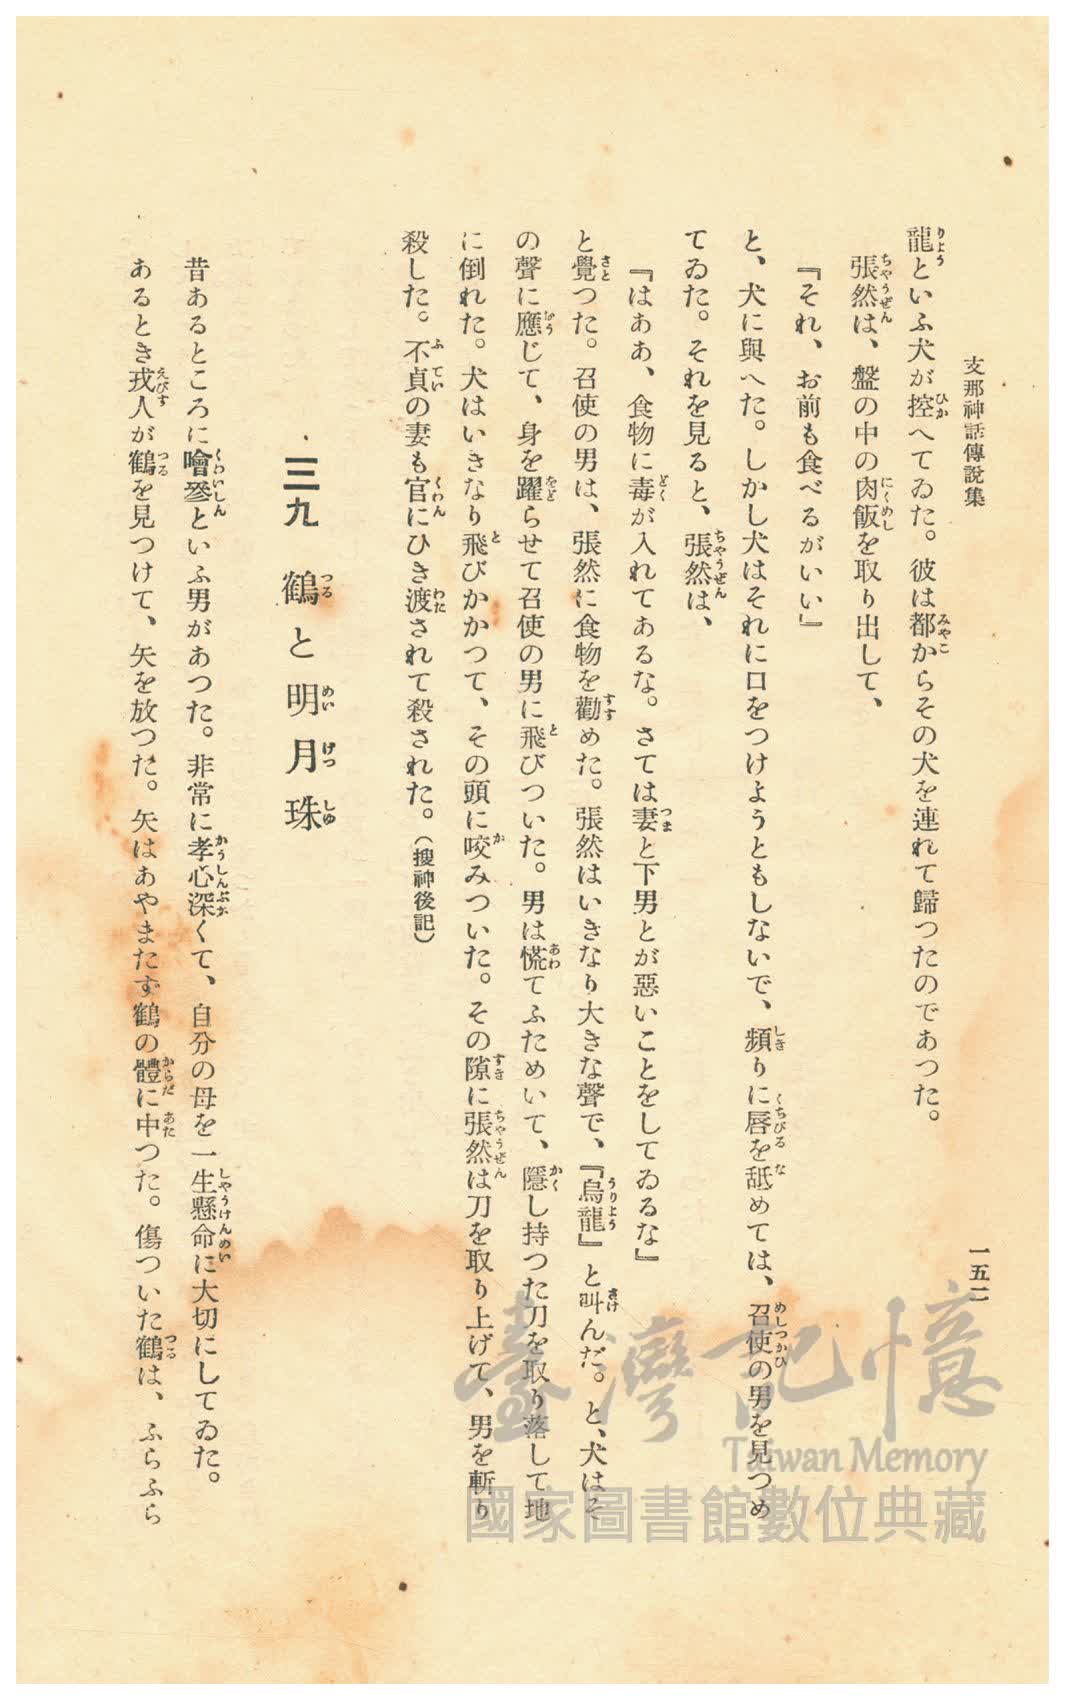 支那神話傳說集
一五二
龍といふ犬が控へてゐた。彼は都からその犬を連れて歸つたのであつた。
張然は、盤の中の肉飯を取り出して、
『それ、お前も食べるがいい』
と、犬に與へた。しかし犬はそれに口をつけようともしないで、頻りに唇を舐めては、召使の男を見つめ
てゐた。それを見ると、張然は、
『はああ、食物に毒が入れてあるな。さては妻と下男とが惡いことをしてゐるな』
と覺つた。召使の男は、張然に食物を勸めた。張然はいきなり大きな聲で、『烏龍』と叫んだ。と、犬はそ
の聲に應じて、身を躍らせて召使の男に飛びついた。男は慌てふためいて、隱し持つた刀を取り落して地
に倒れた。犬はいきなり飛びかかつて、その頭に咬みついた。その隙に張然は刀を取り上げて、男を斬り
殺した。不貞の妻も官にひき渡されて殺された。（搜神後記）
三九 鶴と明月珠
昔あるところに噲參といふ男があつた。非常に孝心深くて、自分の母を一生懸命に大切にしてゐた。
あるとき戎人が鶴を見つけて、矢を放つた。矢はあやまたず鶴の體に中つた。傷ついた鶴は、ふらふら
臺灣記憶
Taiwan Memory
國家圖書館數位典藏